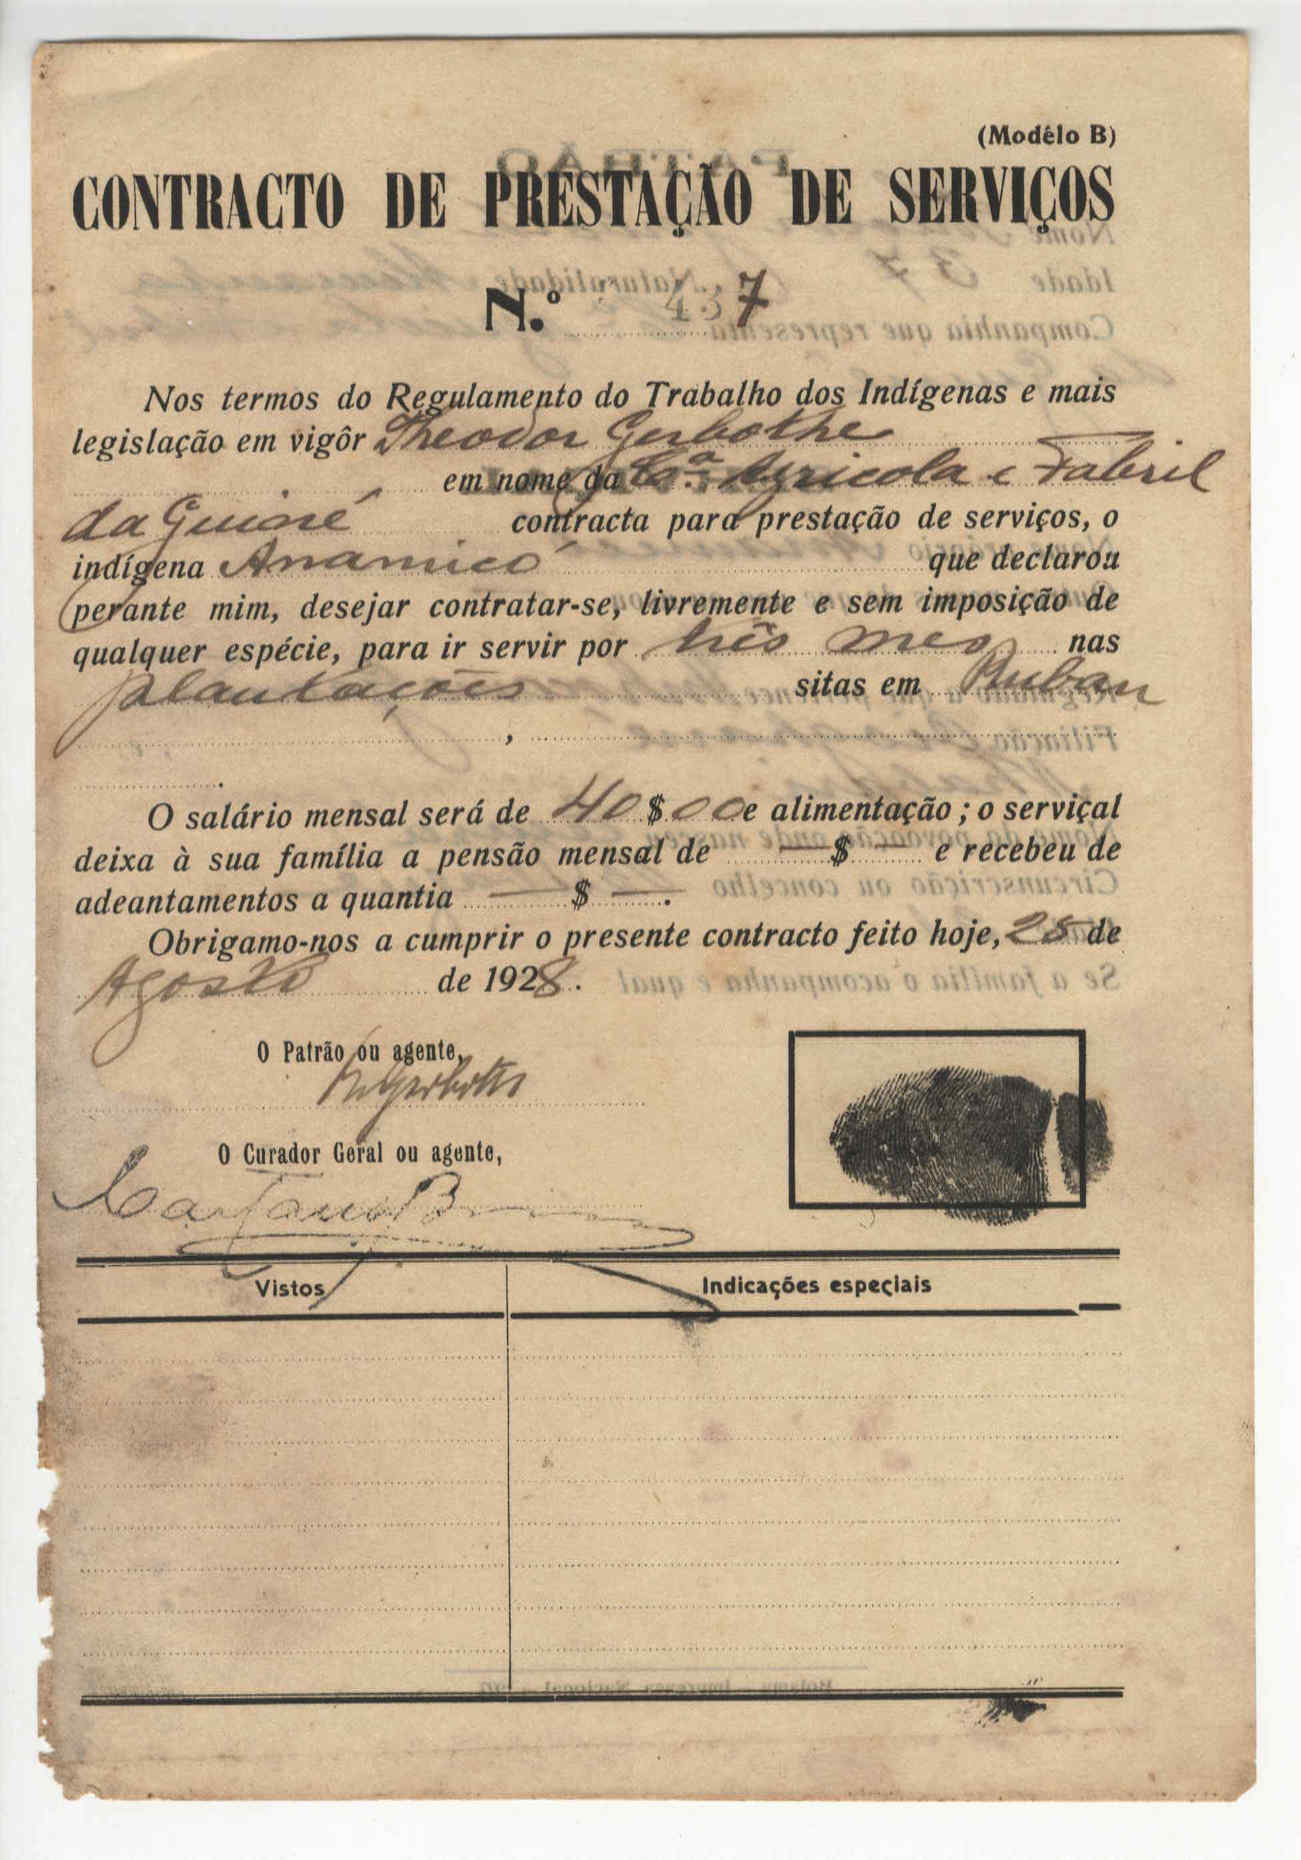 (Modêlo B)
CONTRACTO DE PRESTAÇÃO DE SERVIÇOS
N.º 437
Nos termos do Regulamento do Trabalho dos Indígenas e mais
legislação em vigôr Theodor Gerbothe
em nome da Cª. Agricola e Fabril
da Guiné contracta para prestação de serviços, o
indígena Anamicó que declarou
perante mim, desejar contratar-se, livremente e sem imposição de
qualquer espécie, para ir servir por três mes nas
plantações sitas em Ruban
,
.
O salário mensal será de 40$00 e alimentação; o serviçal
deixa à sua família a pensão mensal de —$— e recebeu de
adeantamentos a quantia —$—.
Obrigamo-nos a cumprir o presente contracto feito hoje, 25 de
Agosto de 1928.
O Patrão ou agente,
Gerbothe
O Curador Geral ou agente,
Caetano B
Vistos Indicações especiais